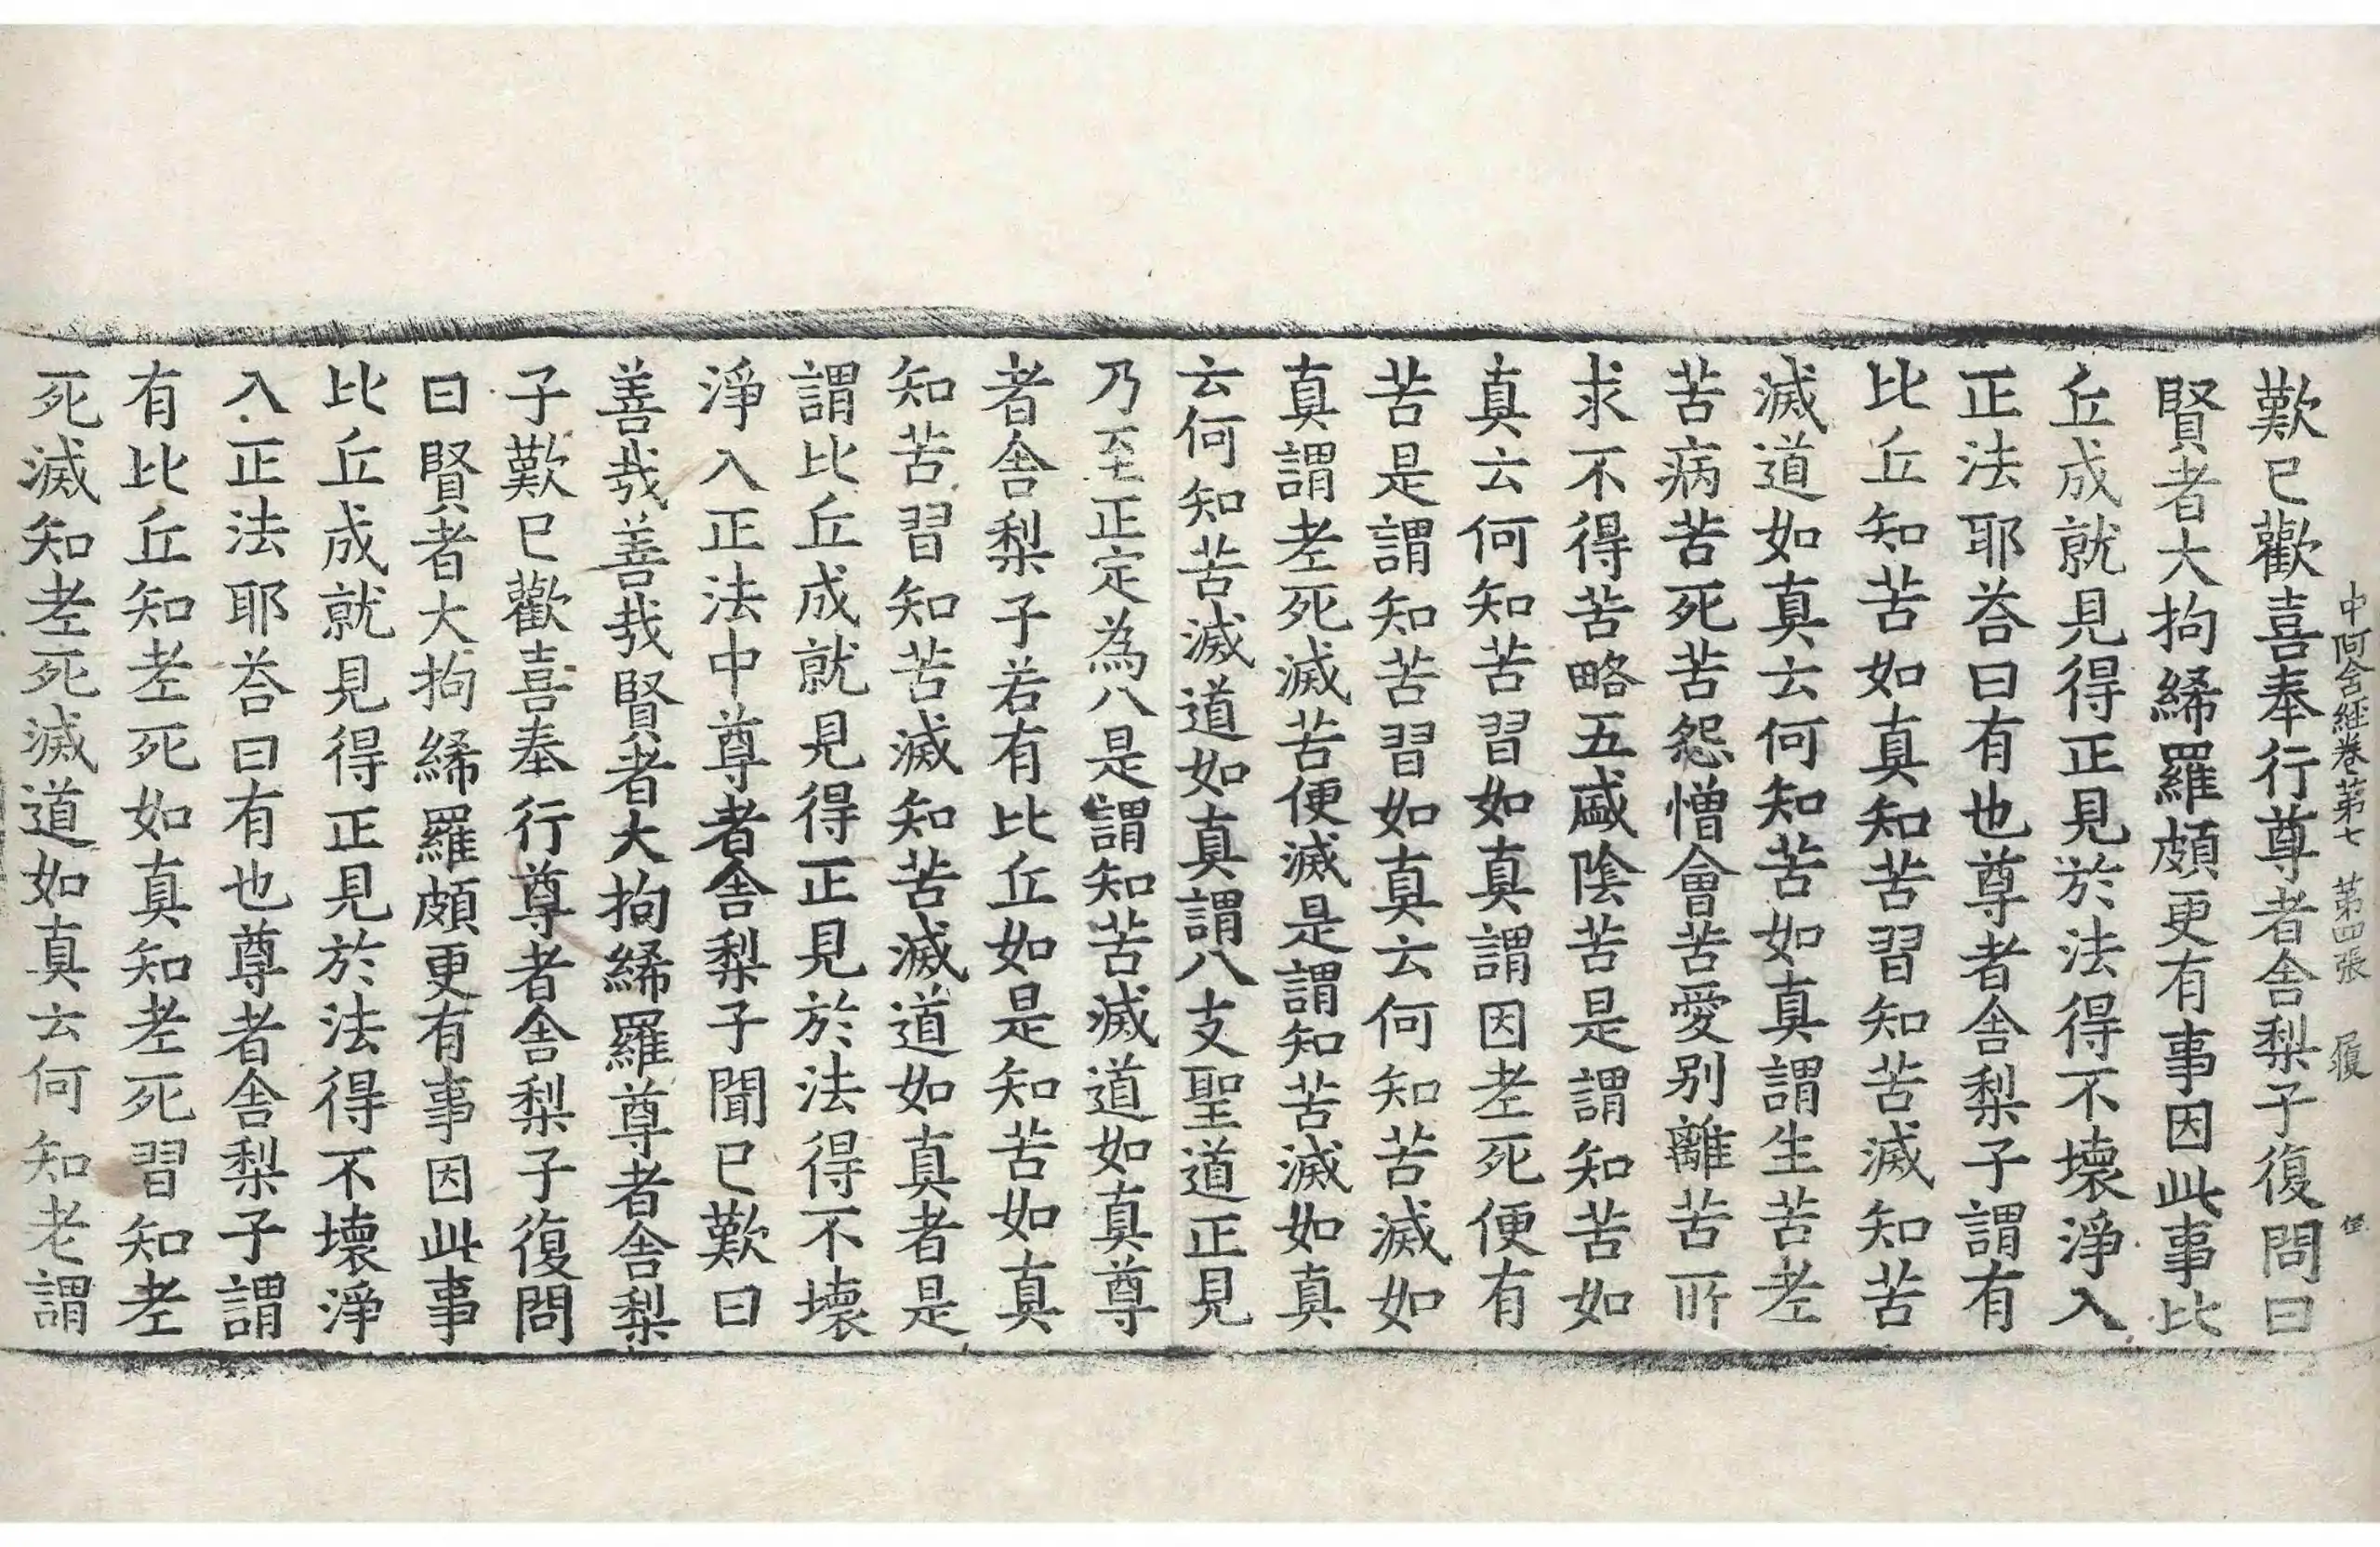 中阿含經卷第七 第四張 履
歎已歡喜奉行尊者舍梨子復問曰
賢者大拘絺羅頗更有事因此事比
丘成就見得正見於法得不壞淨入
正法耶荅曰有也尊者舍梨子謂有
比丘知苦如真知苦習知苦滅知苦
滅道如真云何知苦如真謂生苦老
苦病苦死苦怨憎會苦愛別離苦所
求不得苦略五盛陰苦是謂知苦如
真云何知苦習如真謂因老死便有
苦是謂知苦習如真云何知苦滅如
真謂老死滅苦便滅是謂知苦滅如真
云何知苦滅道如真謂八支聖道正見
乃至正定為八是謂知苦滅道如真尊
者舍梨子若有比丘如是知苦如真
知苦習知苦滅知苦滅道如真者是
謂比丘成就見得正見於法得不壞
淨入正法中尊者舍梨子聞已歎曰
善哉善哉賢者大拘絺羅尊者舍梨
子歎已歡喜奉行尊者舍梨子復問
曰賢者大拘絺羅頗更有事因此事
比丘成就見得正見於法得不壞淨
入正法耶荅曰有也尊者舍梨子謂
有比丘知老死如真知老死習知老
死滅知老死滅道如真云何知老謂